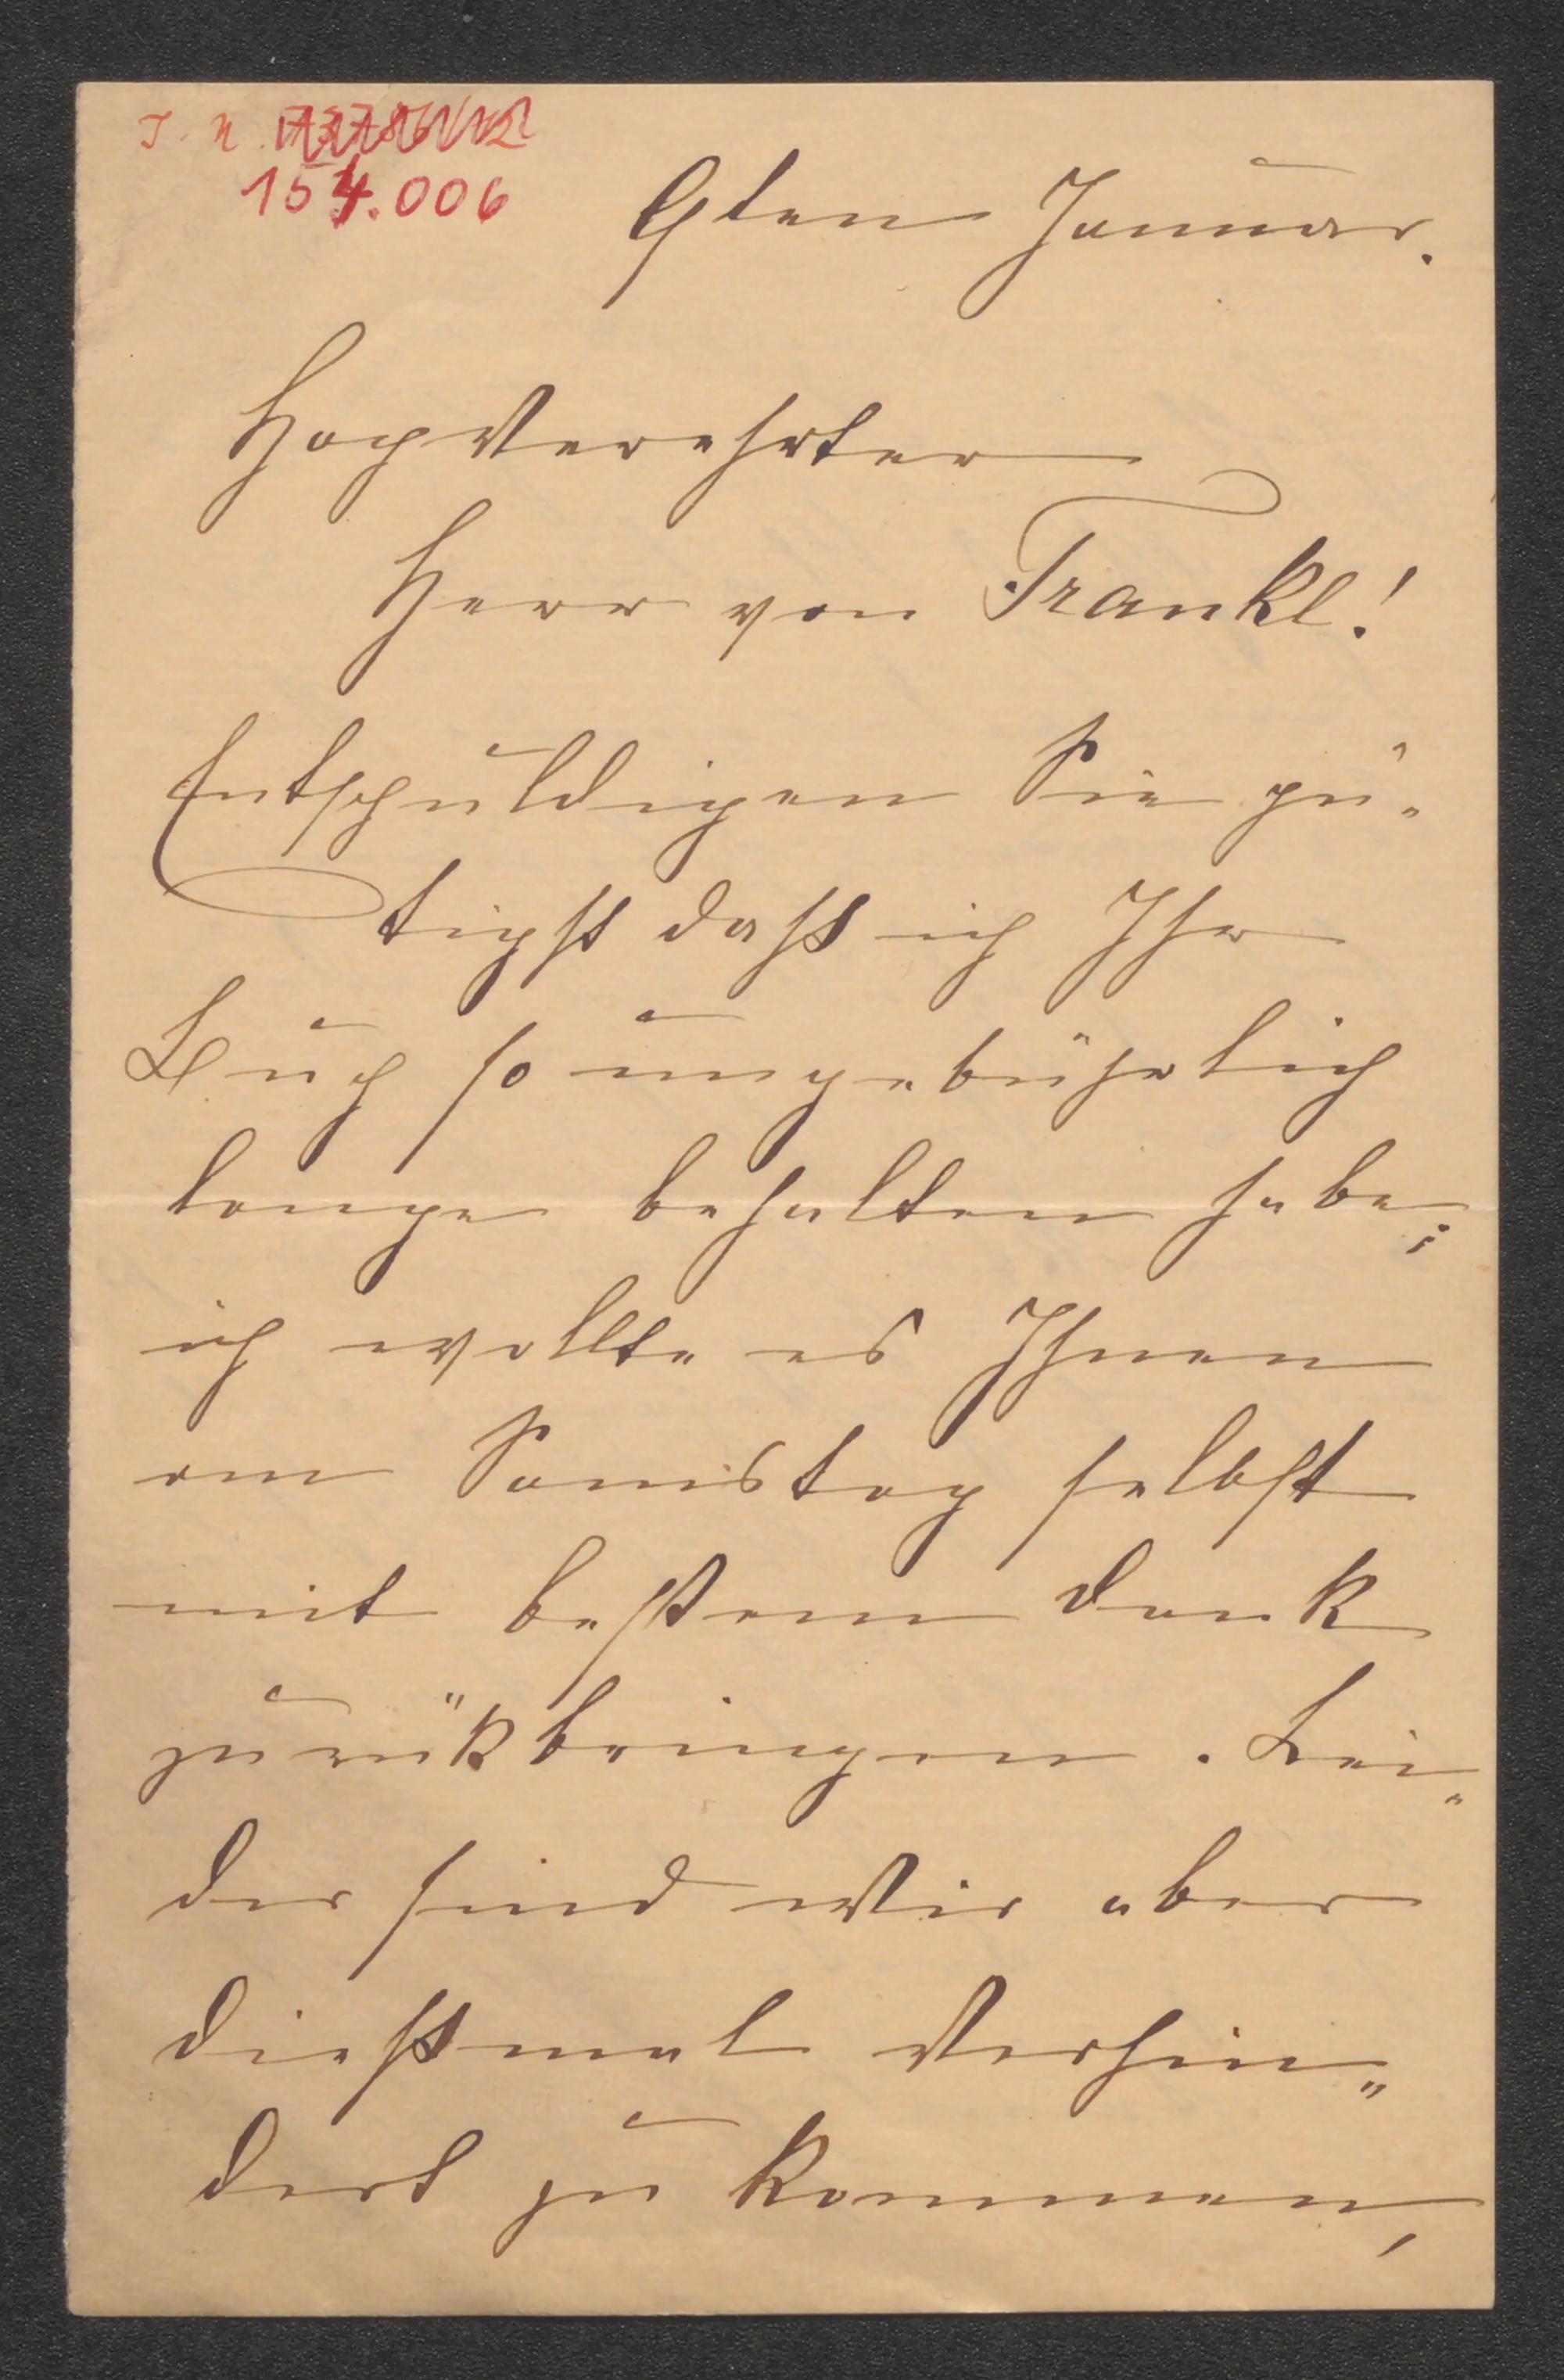 I. N.
154.006
9ten Januar.
Hochverehrter
Herr von Frankl!
Entschuldigen Sie gü-
tigst dasß ich Ihr
Buch so ungebührlich
lange behalten habe;
ich wollte es Ihnen
am Samstag selbst
mit bestem Dank
zurükbringen. Lei-
der sind wir aber
dießmal verhin-
dert zu kommen,